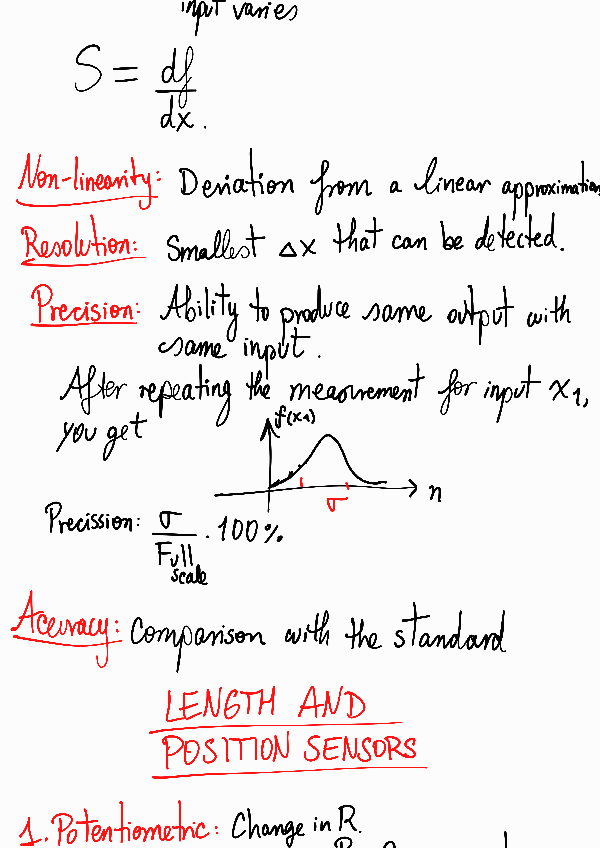 input varies
S = df/dx.
Non-linearity: Deviation from a linear approximation
Resolution: Smallest Δx that can be detected.
Precision: Ability to produce same output with
same input.
After repeating the measurement for input x1,
you get
f(x1)
n
σ
Precission: σ/Full scale · 100%
Accuracy: Comparison with the standard
LENGTH AND
POSITION SENSORS
1. Potentiometric: Change in R.